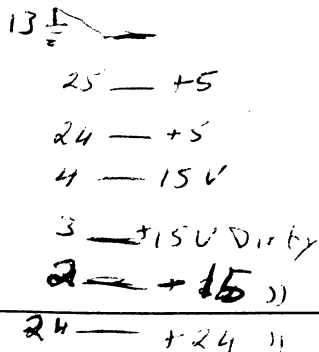 13 ⏚ —
25 — +5
24 — +5
4 — 15 V
3 — +15 V Dirty
2 — + 15 ))
24 — + 24 ))